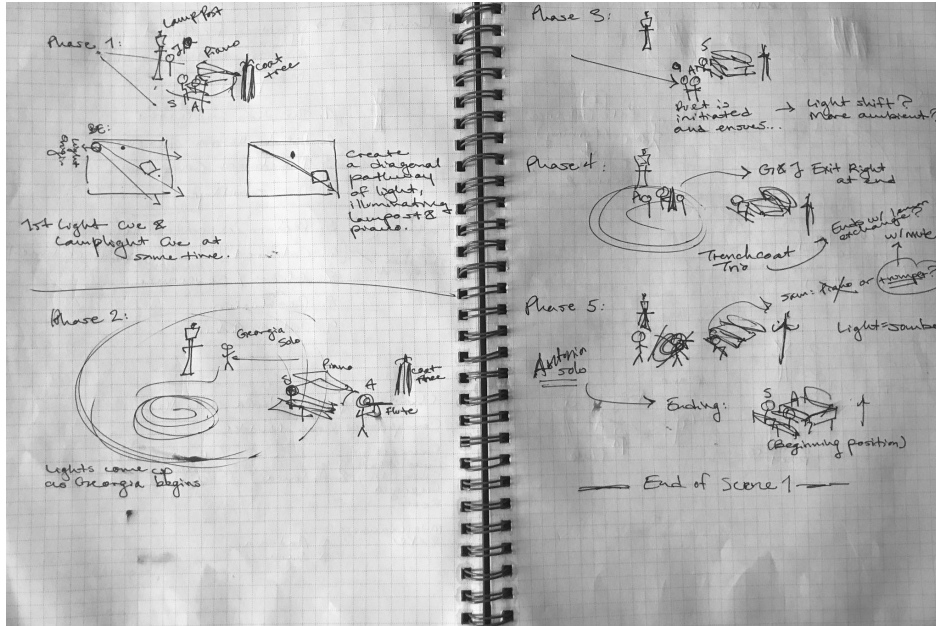 Phase 1:
Lamp Post
Piano
coat
tree
S
A
Create
a diagonal
pathway
of light,
illuminating
lampost &
piano.
1st Light cue &
Lamplight Cue at
same time.
Phase 2:
Georgia
Solo
Piano
S
A
coat
tree
Flute
Lights come up
as Georgia begins
Phase 3:
S
A
G
Duet is
initiated
and ensues...
→ Light shift?
More ambient?
Phase 4:
A
G & J Exit Right
at end
Trenchcoat
Trio
Ends w/ longer
exchange?
w/ mute
Phase 5:
Sam: Piano or trumpet?
Antonin
solo
Ending:
S
A
(Beginning position)
End of Scene 1